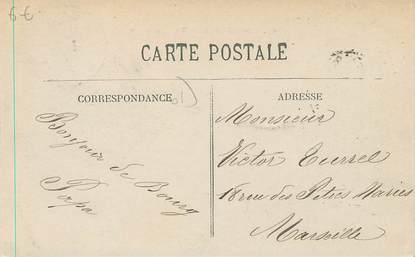 6 €
CARTE POSTALE
CORRESPONDANCE
ADRESSE
Bonjour de Bourg
Papa
Monsieur
Victor Tursel
18 rue des Petites Maries
Marseille